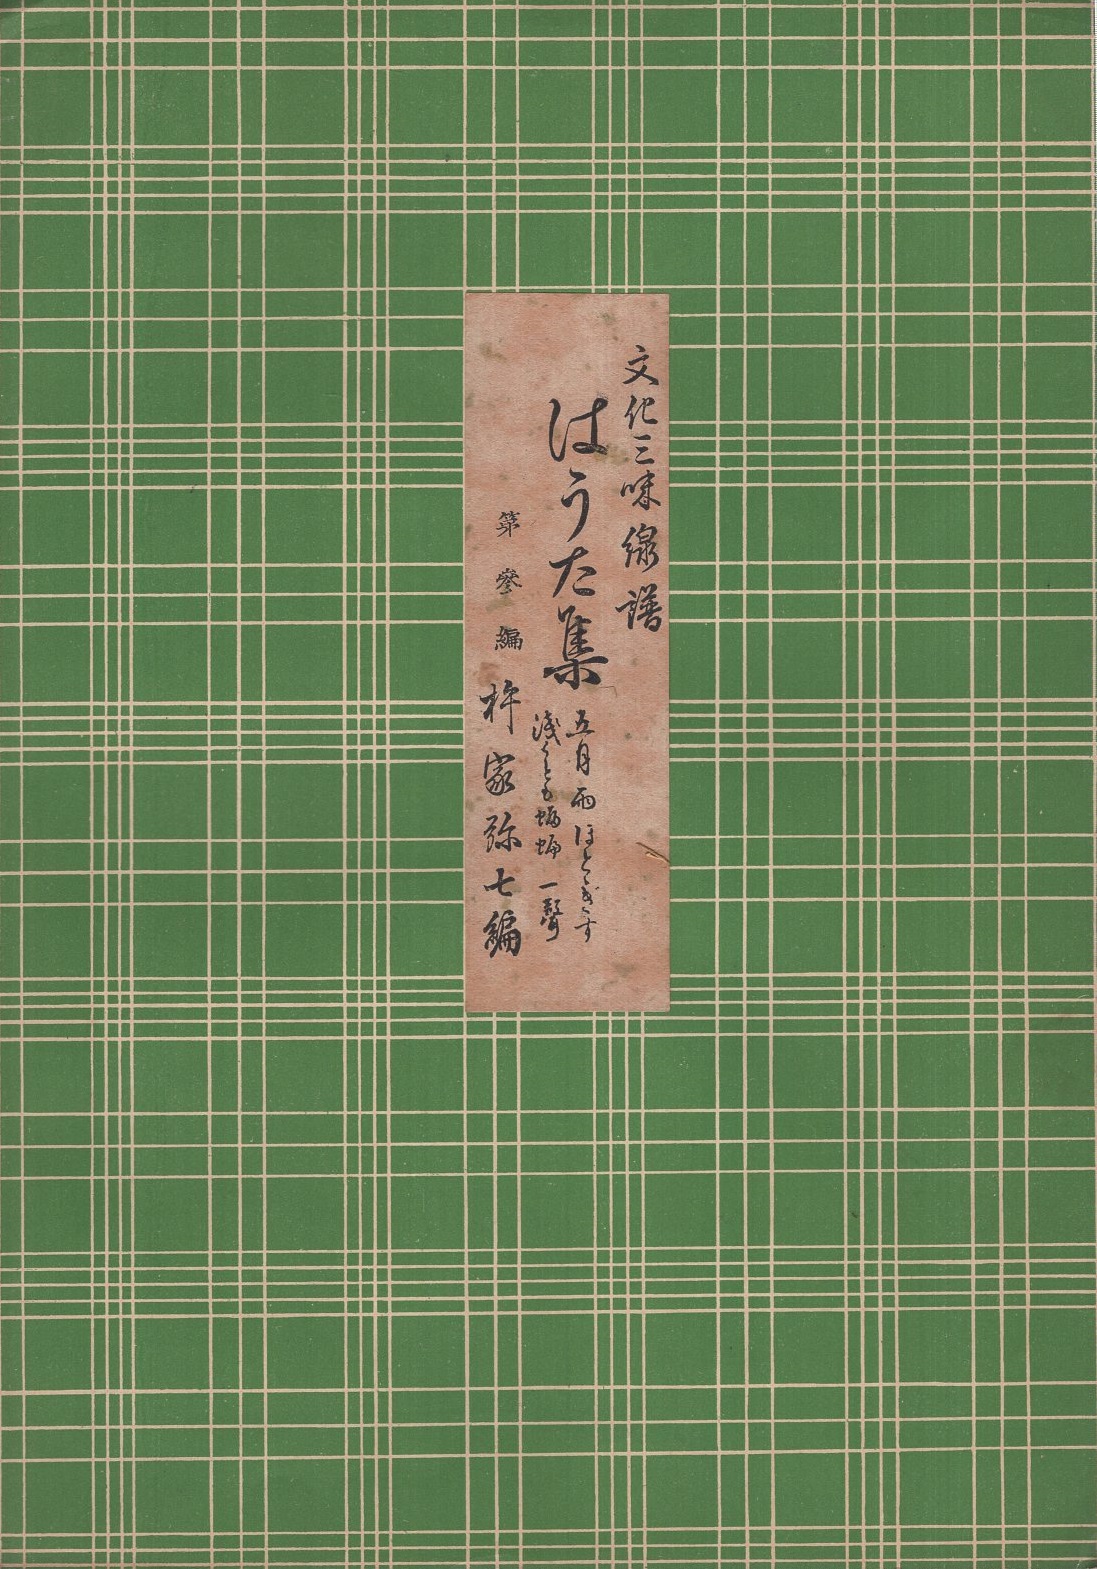 文化三味線譜
はうた集
五月雨 ほとゝぎす
淺くとも 蝙蝠 一聲
第參編
杵家弥七編